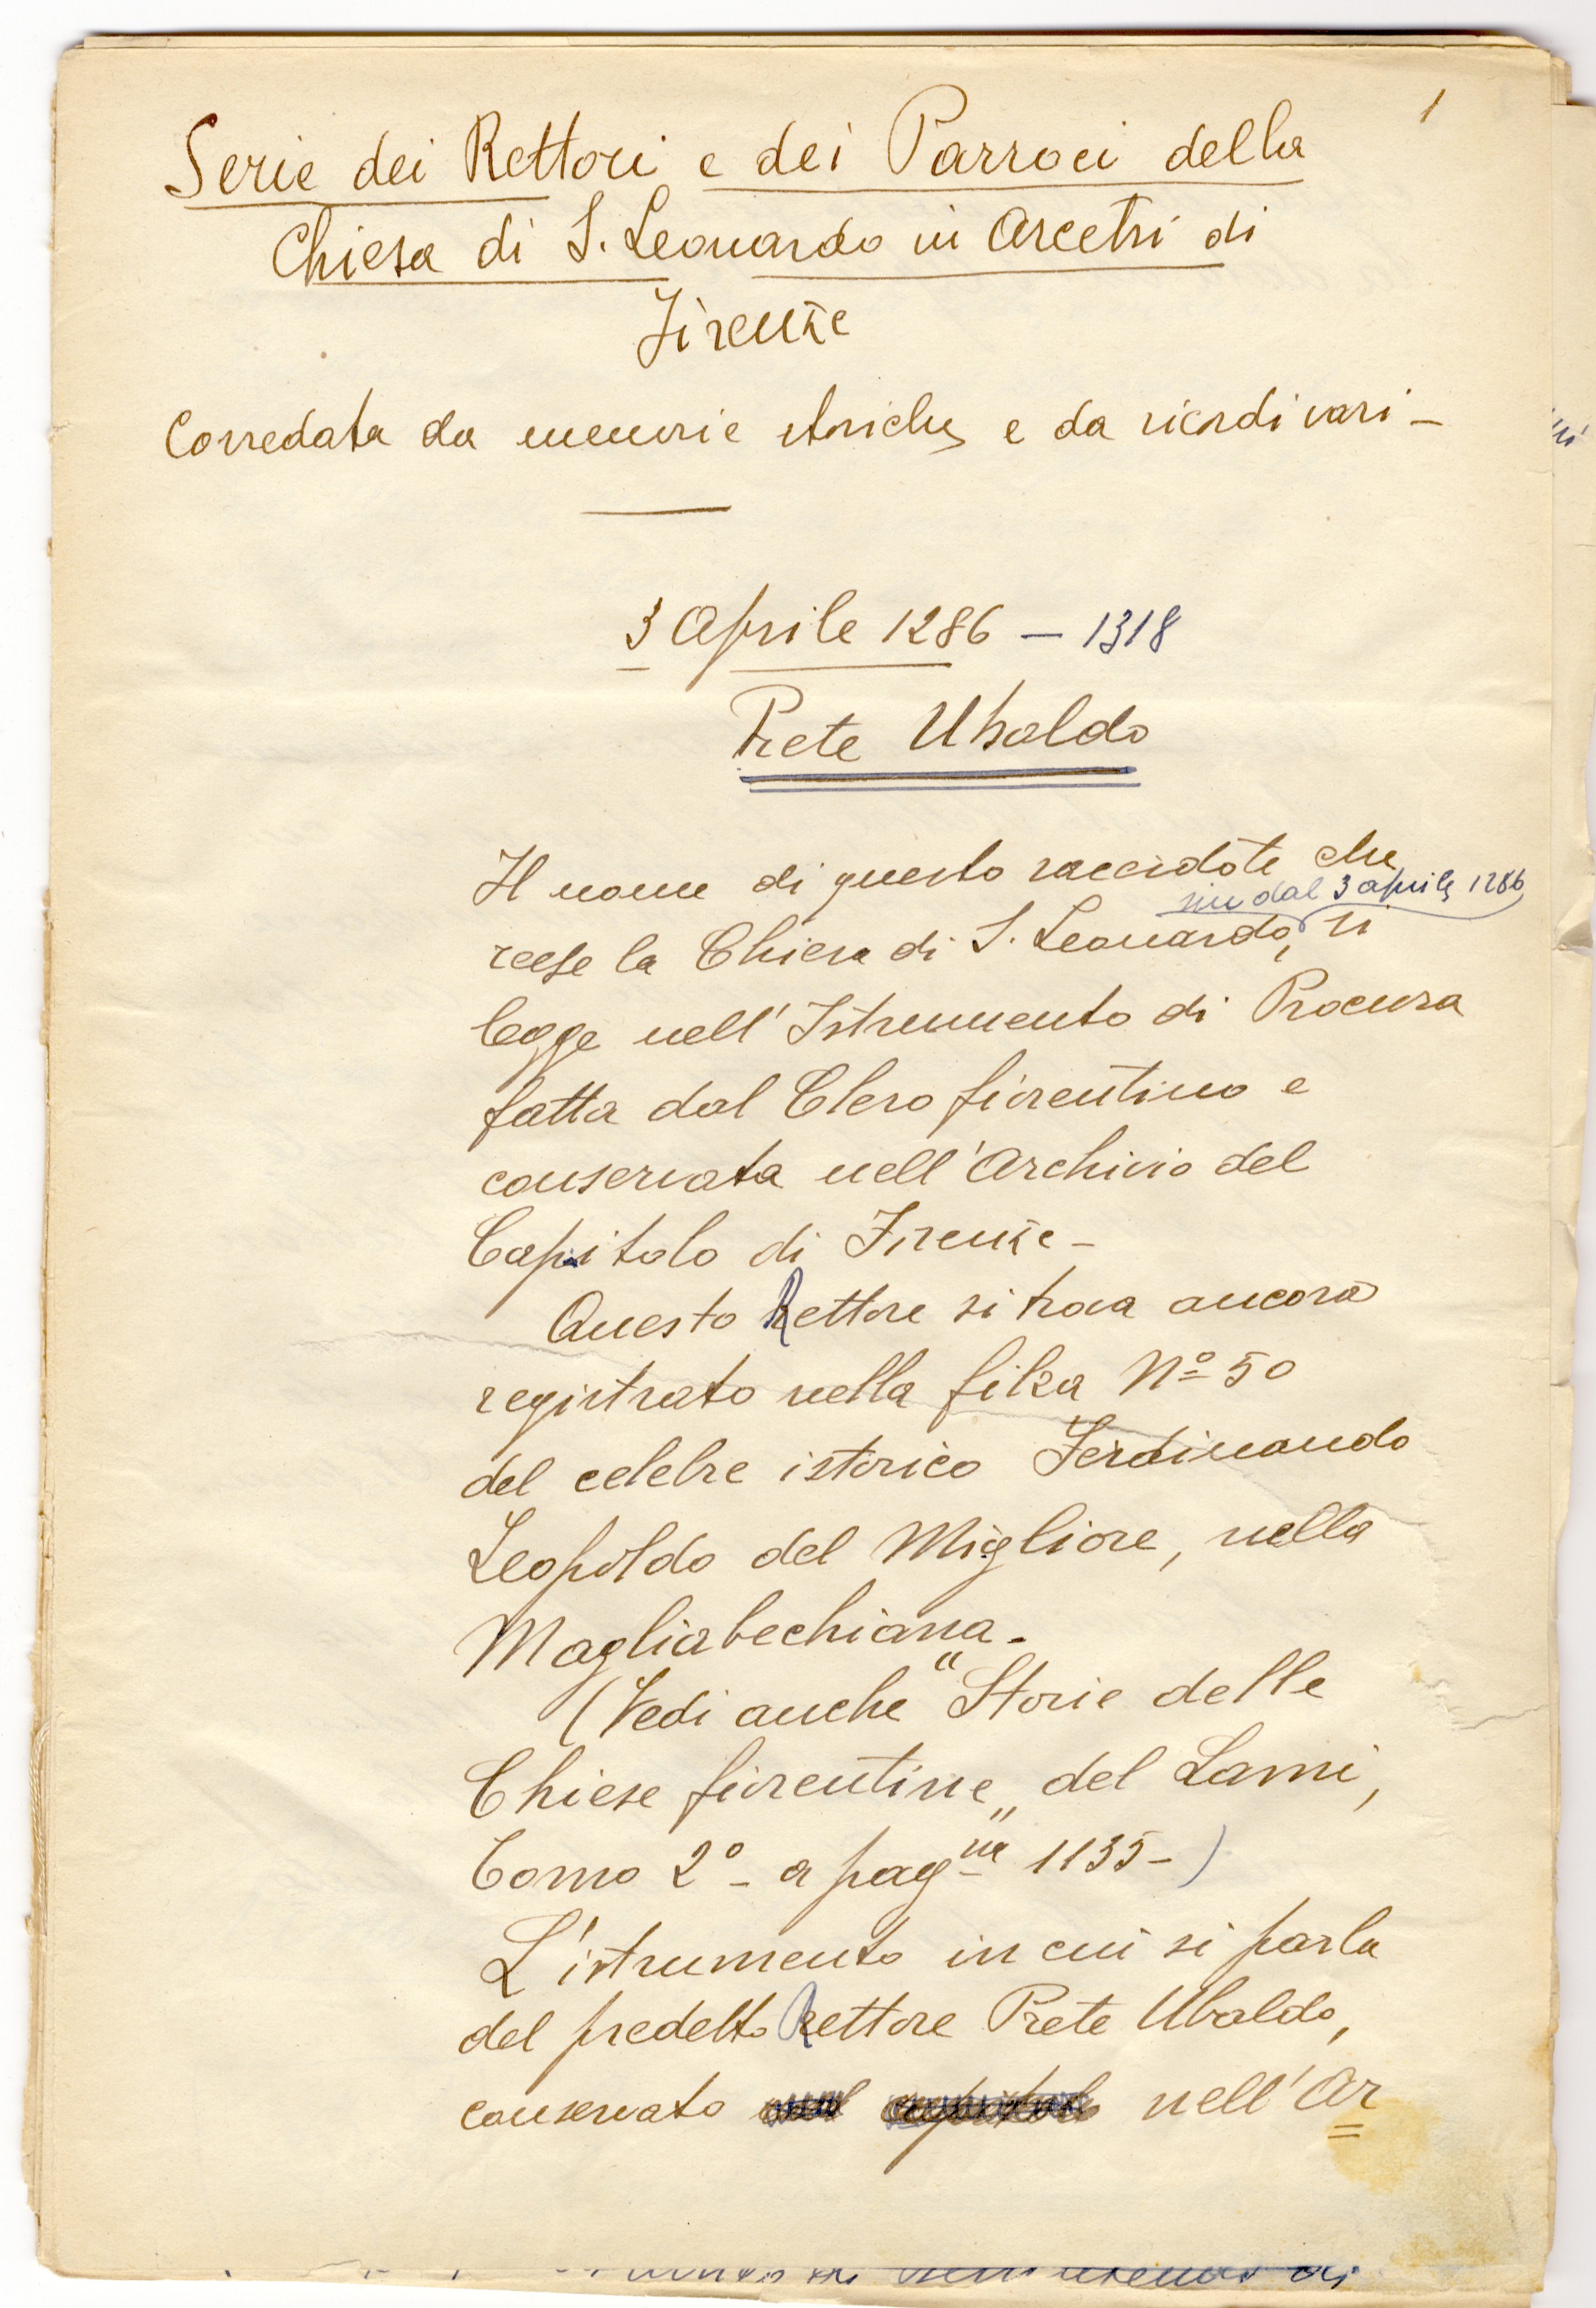 1
Serie dei Rettori e dei Parroci della
Chiesa di S. Leonardo in Arcetri di
Firenze
Corredata da memorie storiche e da ricordi vari –
3 Aprile 1286 – 1318
Prete Ubaldo
Il nome di questo sacerdote che
sin dal 3 aprile 1286
resse la Chiesa di S. Leonardo, si
legge nell'Istrumento di Procura
fatta dal Clero fiorentino e
conservata nell'Archivio del
Capitolo di Firenze –
Questo Rettore si trova ancora
registrato nella filza Nº 50
del celebre istorico Ferdinando
Leopoldo del Migliore, nella
Magliabechiana.
(Vedi anche "Storie delle
Chiese fiorentine" del Lami,
Tomo 2º – a pagna 1135 –)
L'istrumento in cui si parla
del predetto Rettore Prete Ubaldo,
conservato nell'Ar